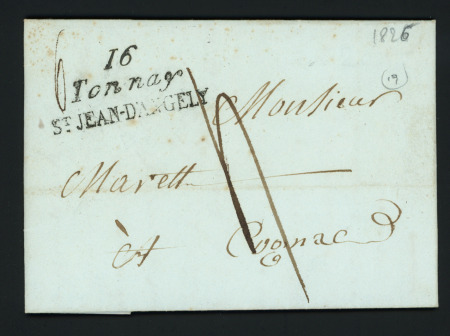 1826
19
16
Tonnay
ST JEAN-D'ANGELY
Monsieur
Marett
à Cognac